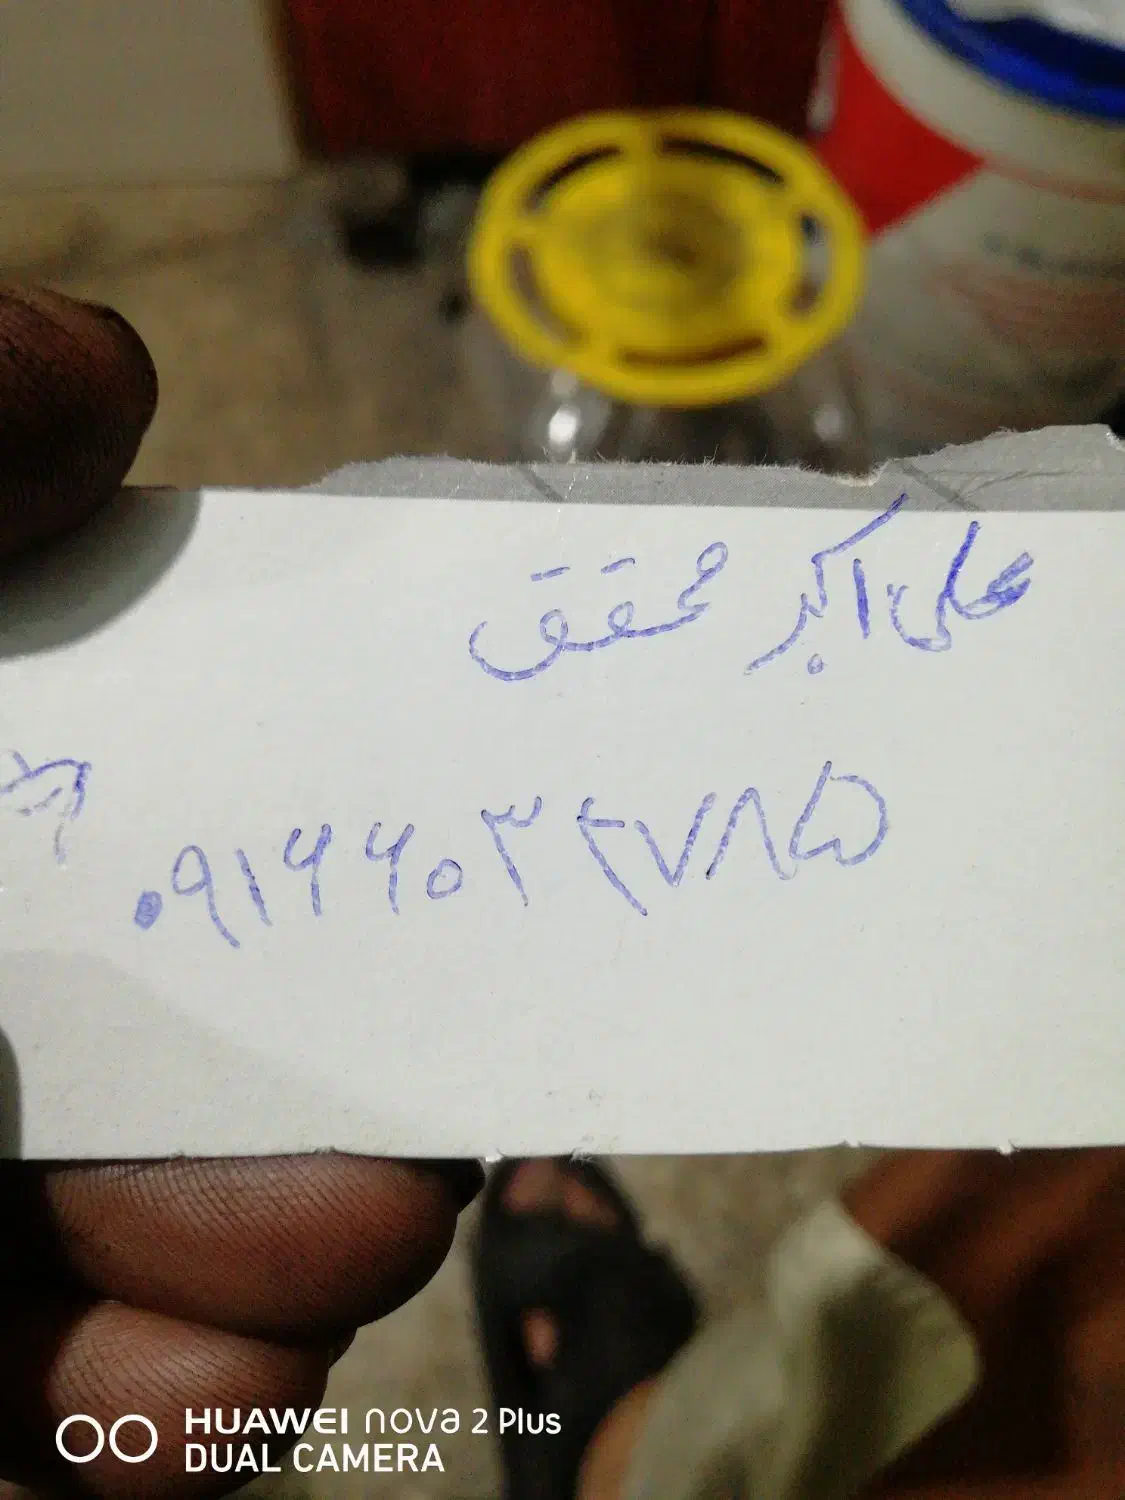 علی اکبر محقق
۰۹۱۶۶۰۳۲۷۸۵
HUAWEI nova 2 Plus
DUAL CAMERA